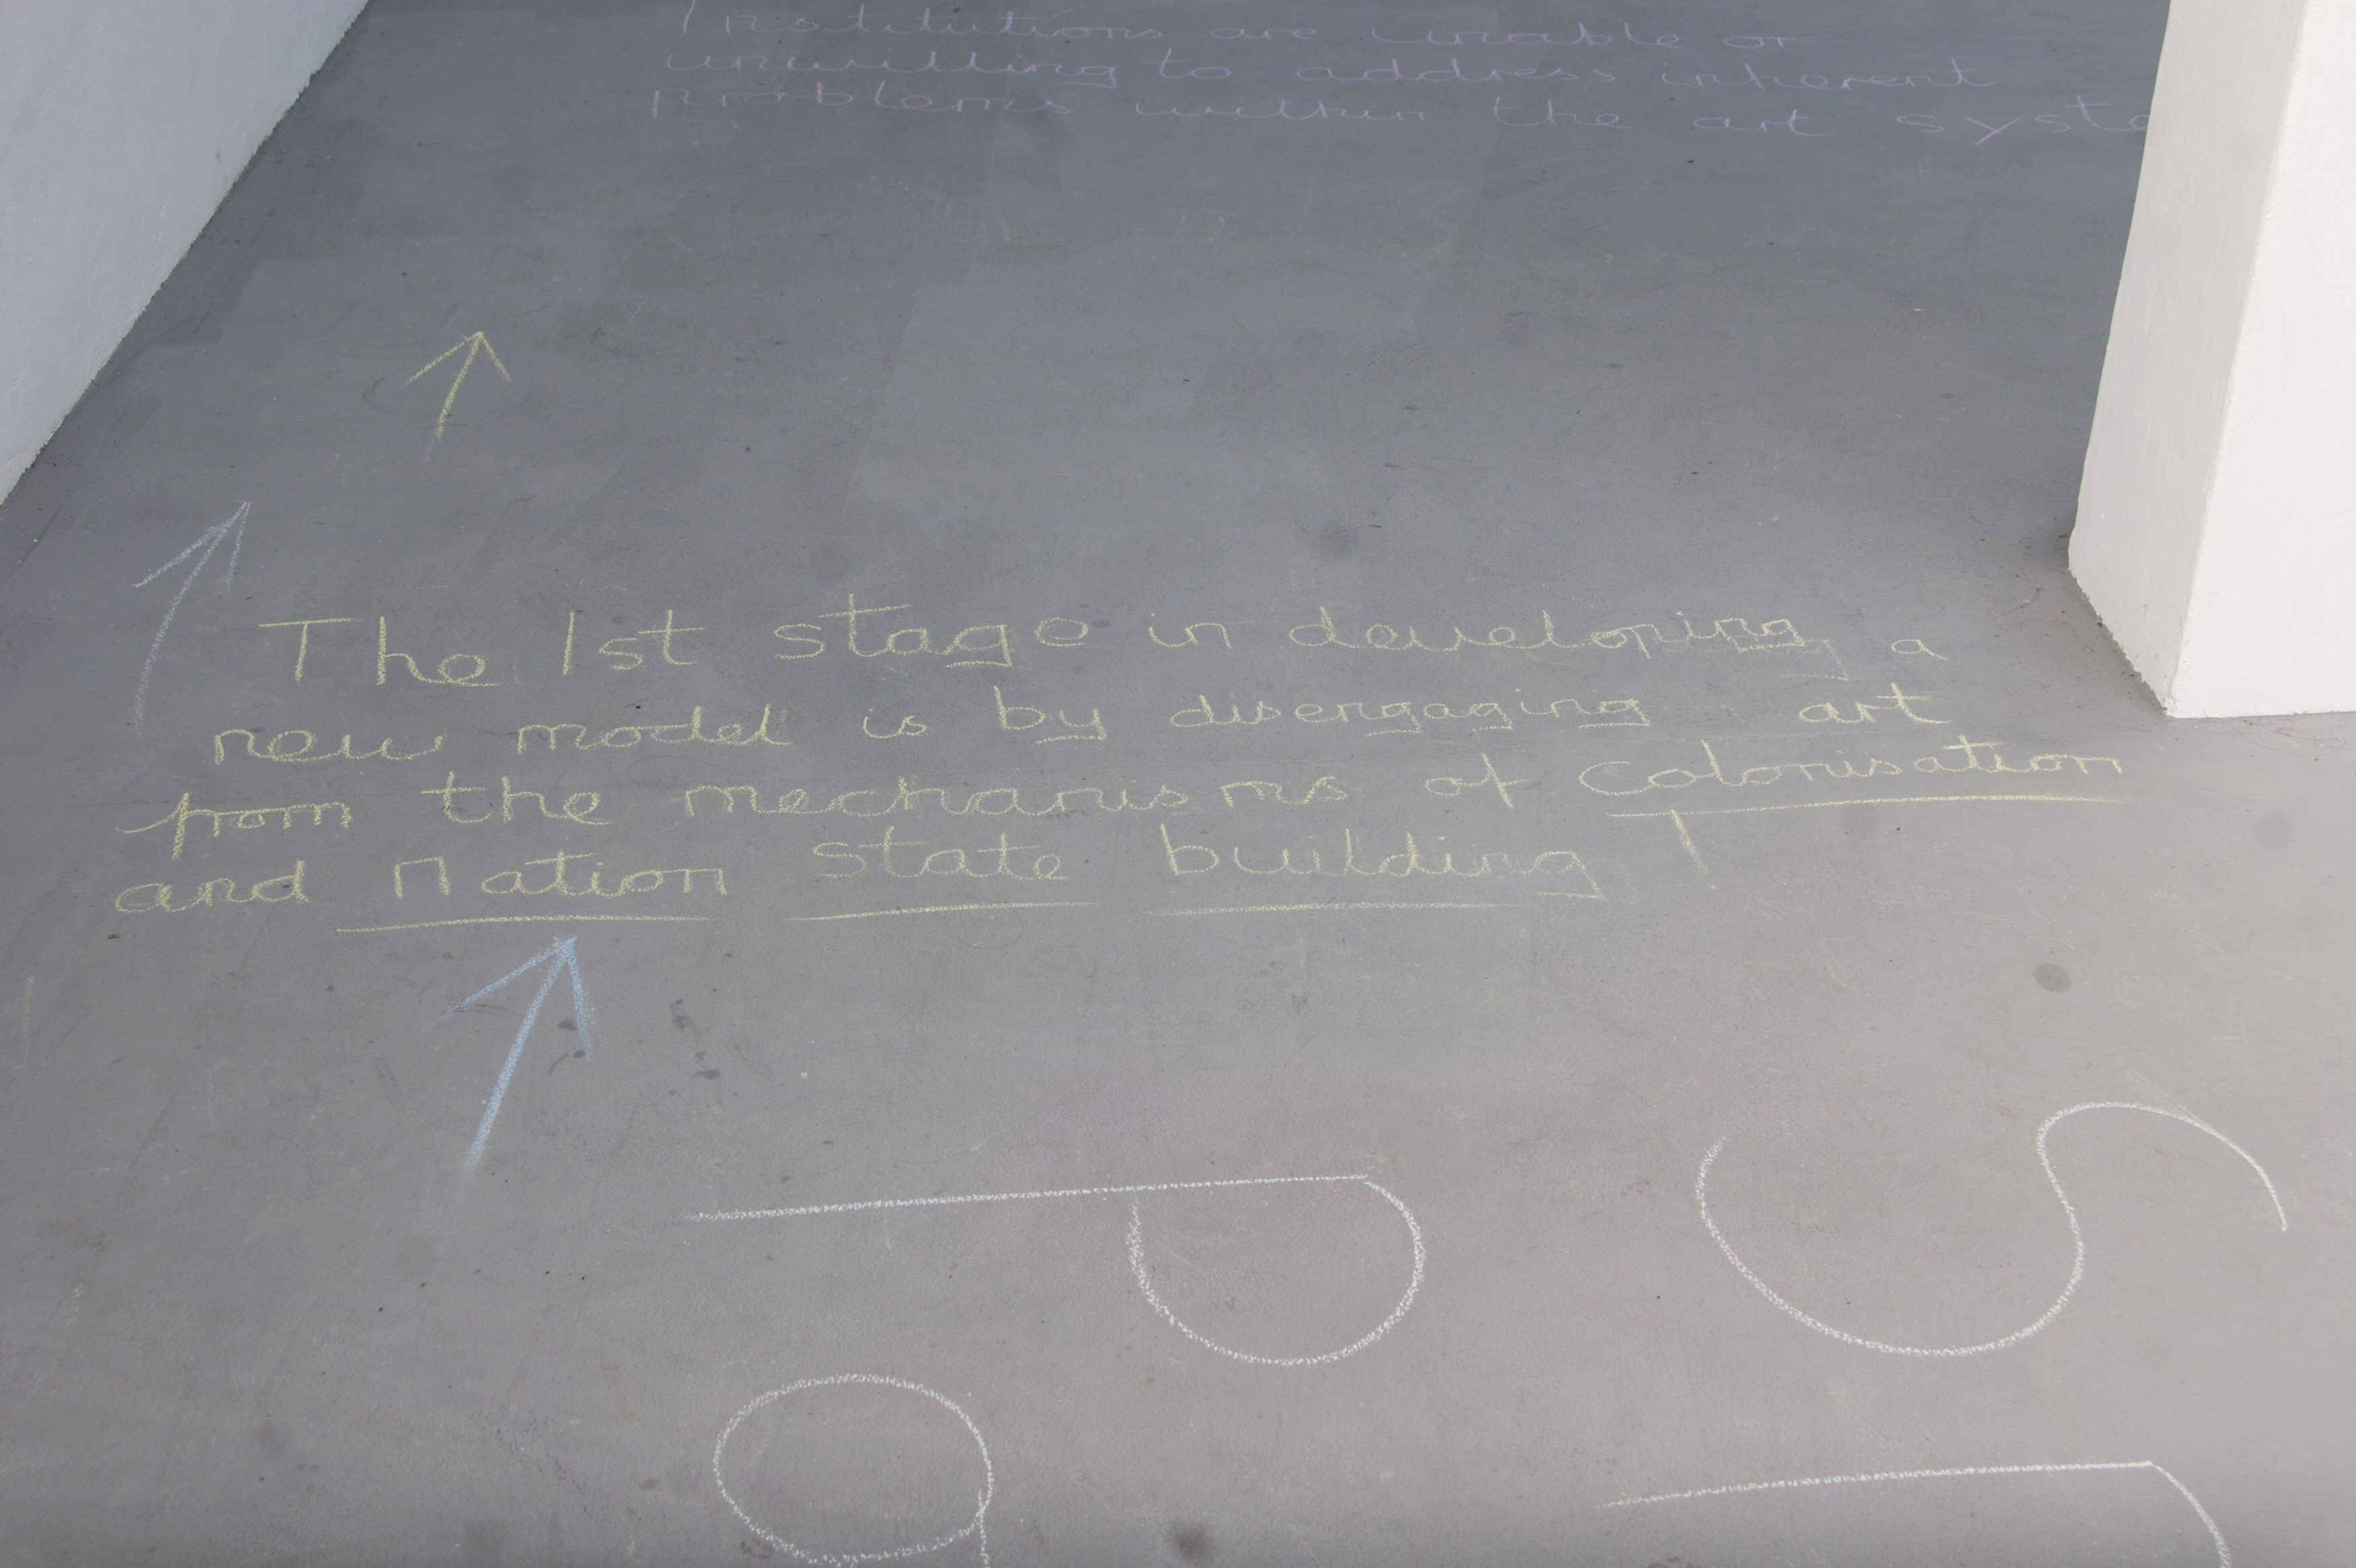 Institutions are unable or
unwilling to address inherent
problems within the art syste
The 1st stage in developing a
new model is by disengaging art
from the mechanisms of Colonisation
and Nation state building !